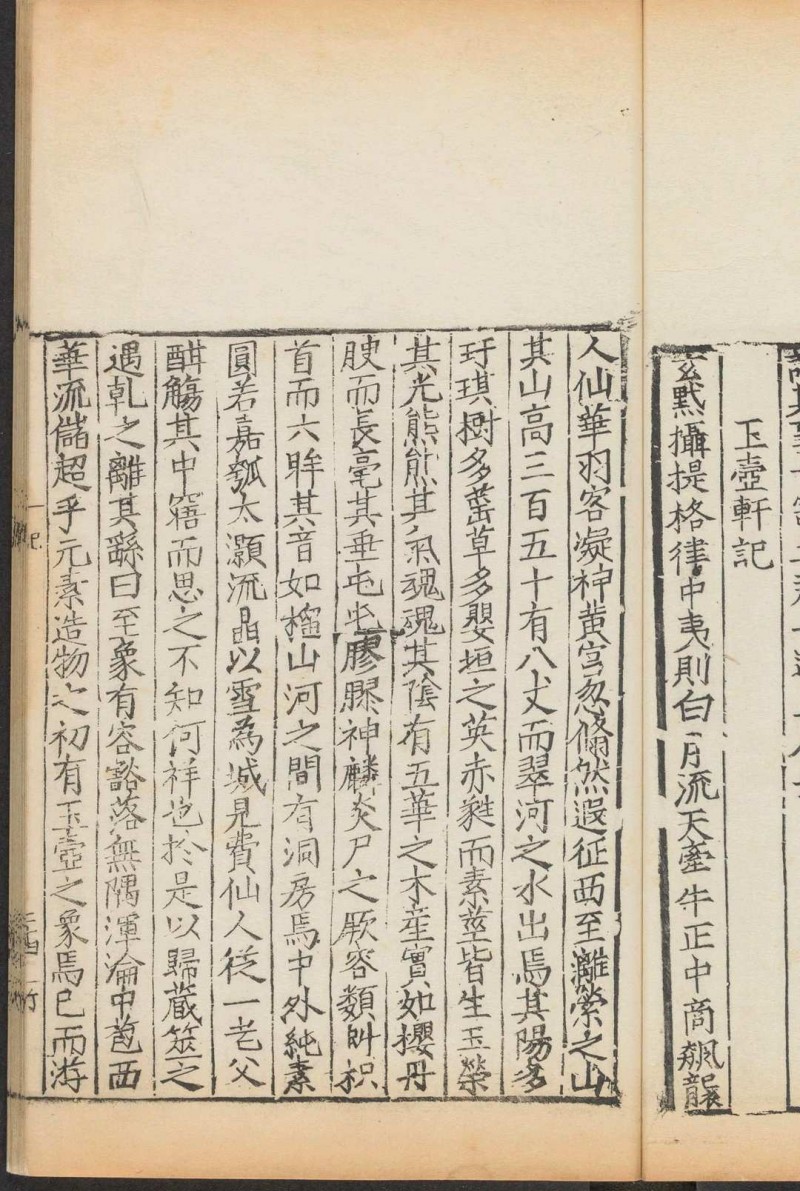 玉壺軒記
玄黓攝提格律中夷則白月流天牽牛正中商飆襲
人仙華羽客凝神黃宮忽翛然遐征西至離縈之山
其山高三百五十有八丈而翠河之水出焉其陽多
玗琪樹多䔄草多嬰垣之英赤蕤而素莖皆生玉榮
其光熊熊其氣魂魂其陰有五華之木產實如櫻丹
腴而長毫其垂屯屯膠膠神麟炎尸之厥容類
首而六眸其音如榴山河之間有洞房焉中外純素
圓若嘉瓠太顥流晶以雪為城見費仙人從一老父
酣觴其中寤而思之不知何祥也於是以歸藏筮之
遇乹之離其繇曰至象有容豁落無隅渾淪中苞西
華流儲超乎元素造物之初有玉壺之象焉已而游